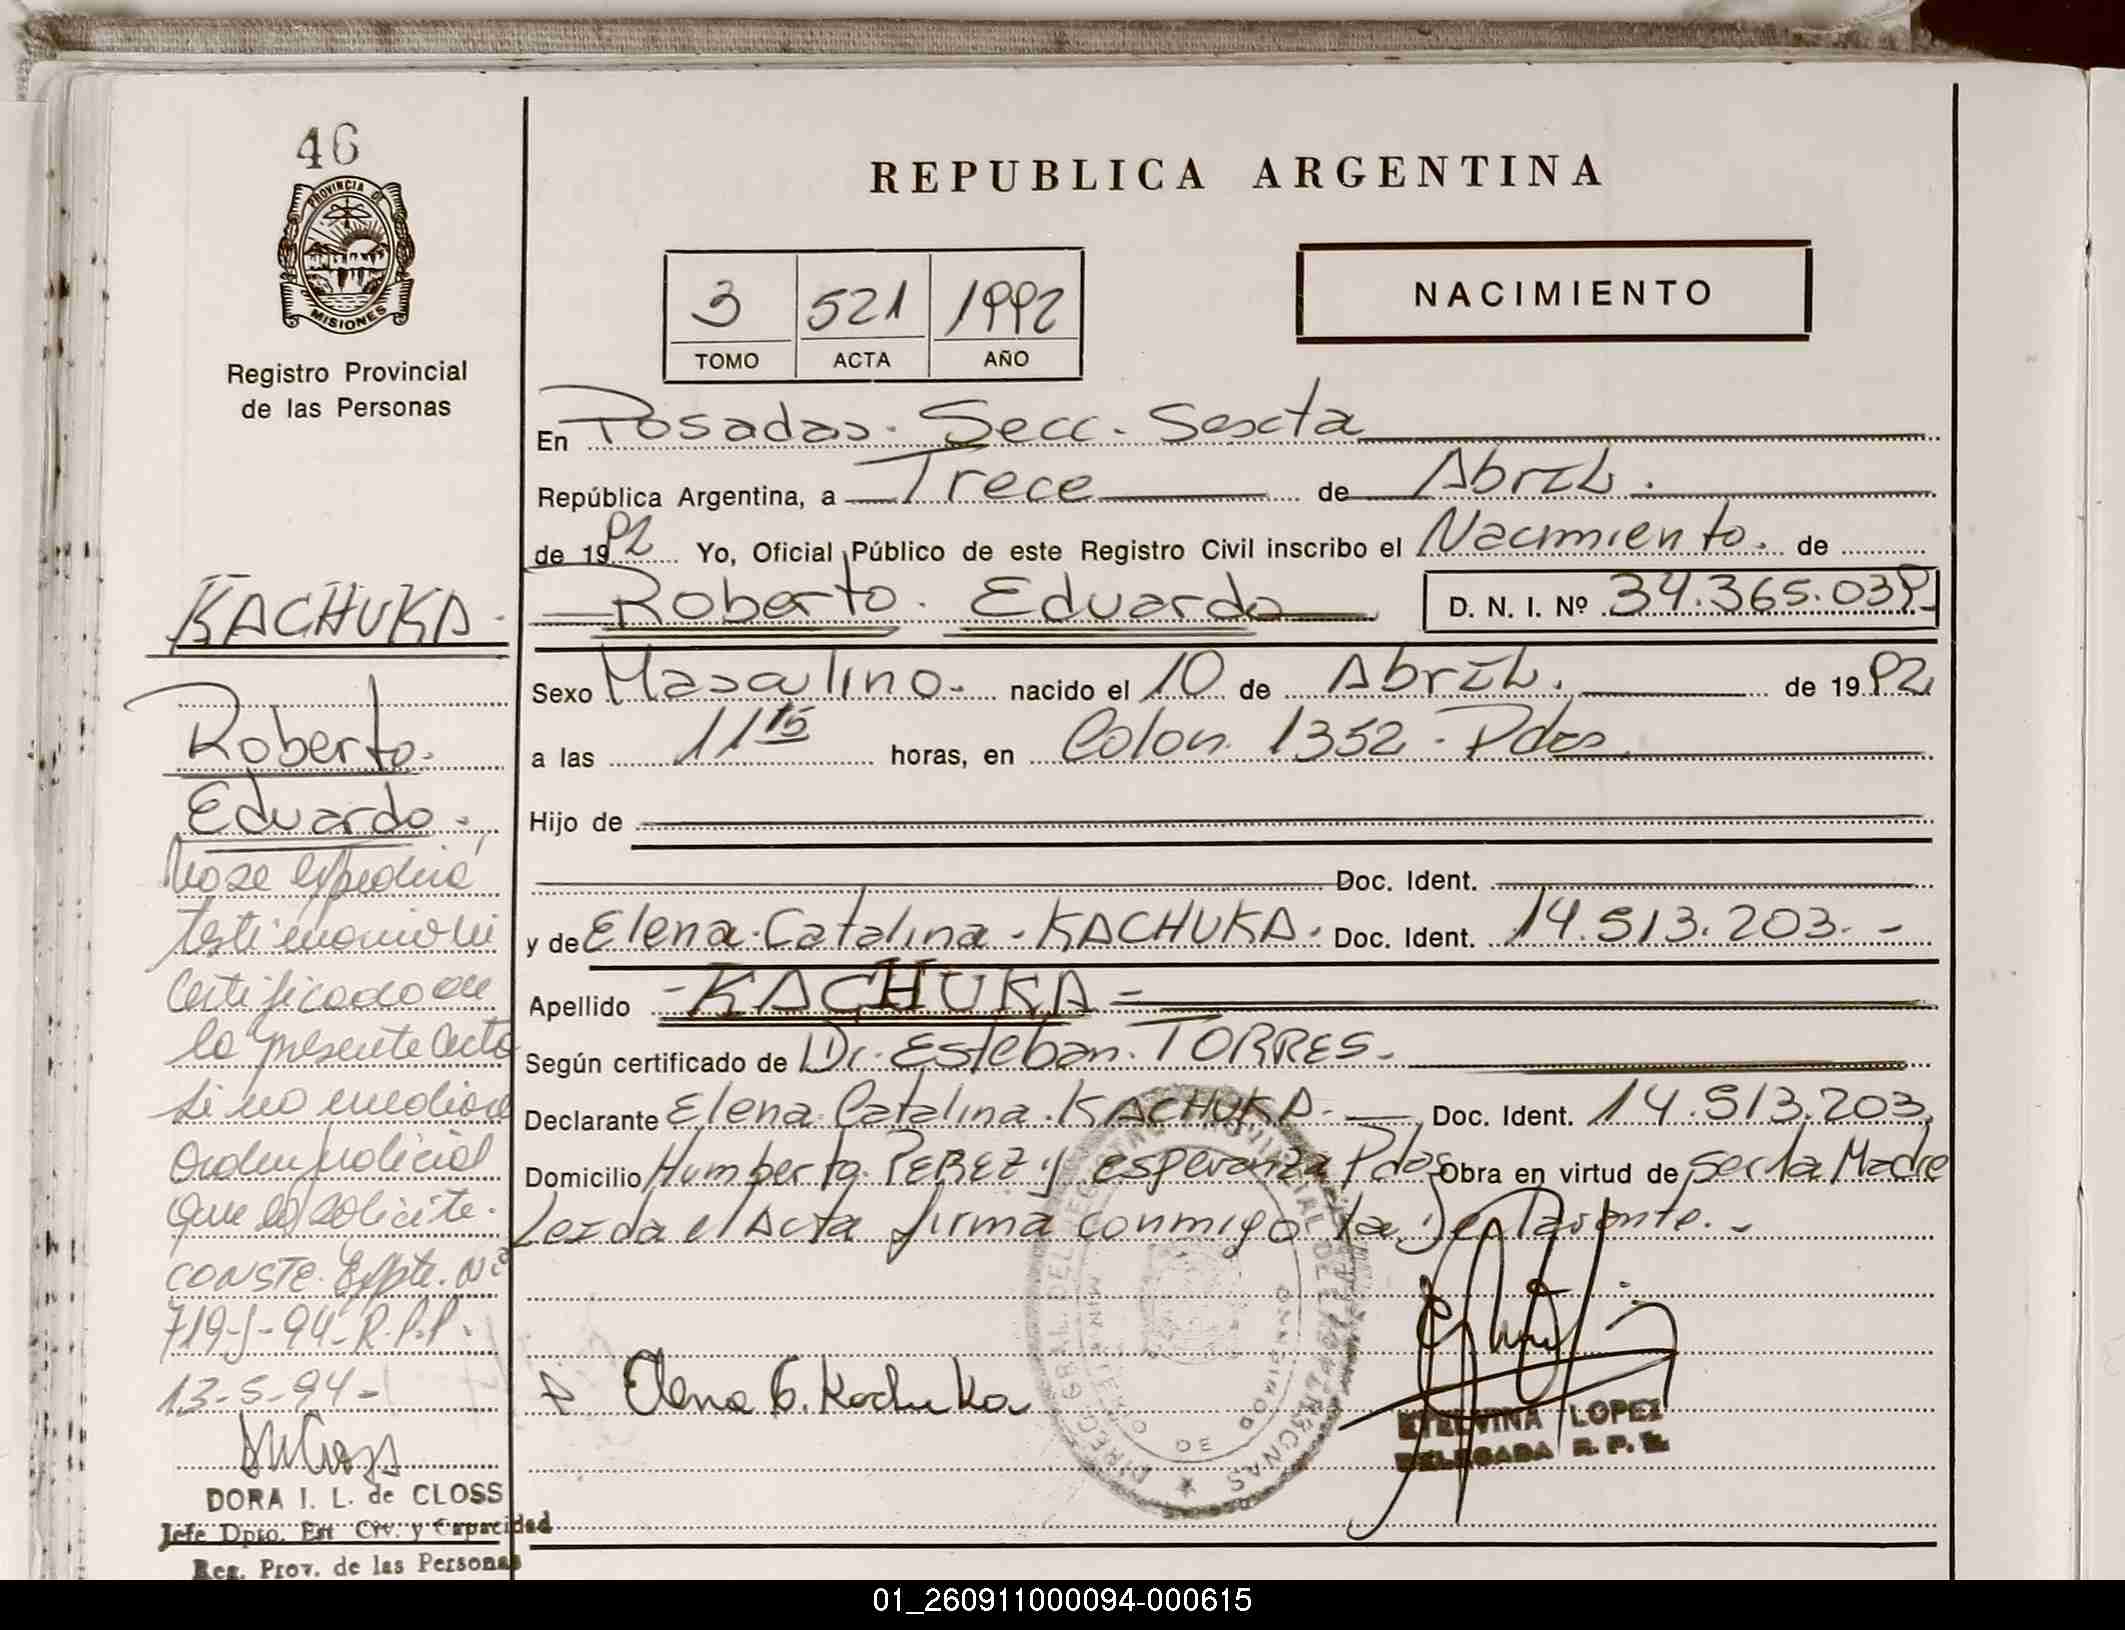 46
PROVINCIA DE
MISIONES
Registro Provincial
de las Personas
REPUBLICA ARGENTINA
3 521 1992
TOMO ACTA AÑO
NACIMIENTO
En Posadas. Secc. Sexta
República Argentina, a Trece de Abril.
de 1992 Yo, Oficial Público de este Registro Civil inscribo el Nacimiento. de
Roberto. Eduardo D. N. I. Nº 34.365.039
Sexo Masculino. nacido el 10 de Abril. de 1992
a las 11 15 horas, en Colon. 1352. Pdas.
Hijo de
Doc. Ident.
y de Elena. Catalina. KACHUKA. Doc. Ident. 14.513.203.-
Apellido - KACHUKA =
Según certificado de Dr. Esteban. TORRES.
Declarante Elena. Catalina. KACHUKA. Doc. Ident. 14.513.203.
Domicilio Humberto. PEREZ y esperanza Pdas Obra en virtud de ser la Madre
Leida el Acta firma conmigo la Declarante.-
Elena C. Kachuka
ETELVINA LOPEZ
DELEGADA R. P. P.
KACHUKA.
Roberto.
Eduardo.
No se expedirá
testimonio ni
Certificado de
la presente Acta
si no media
Orden judicial
que lo solicite.
CONSTE. Expte. Nº
719-J-94-R.P.P.
13-5-94-
DORA I. L. de CLOSS
Jefe Dpto. Est Civ. y Capacidad
Reg. Prov. de las Personas
01_260911000094-000615